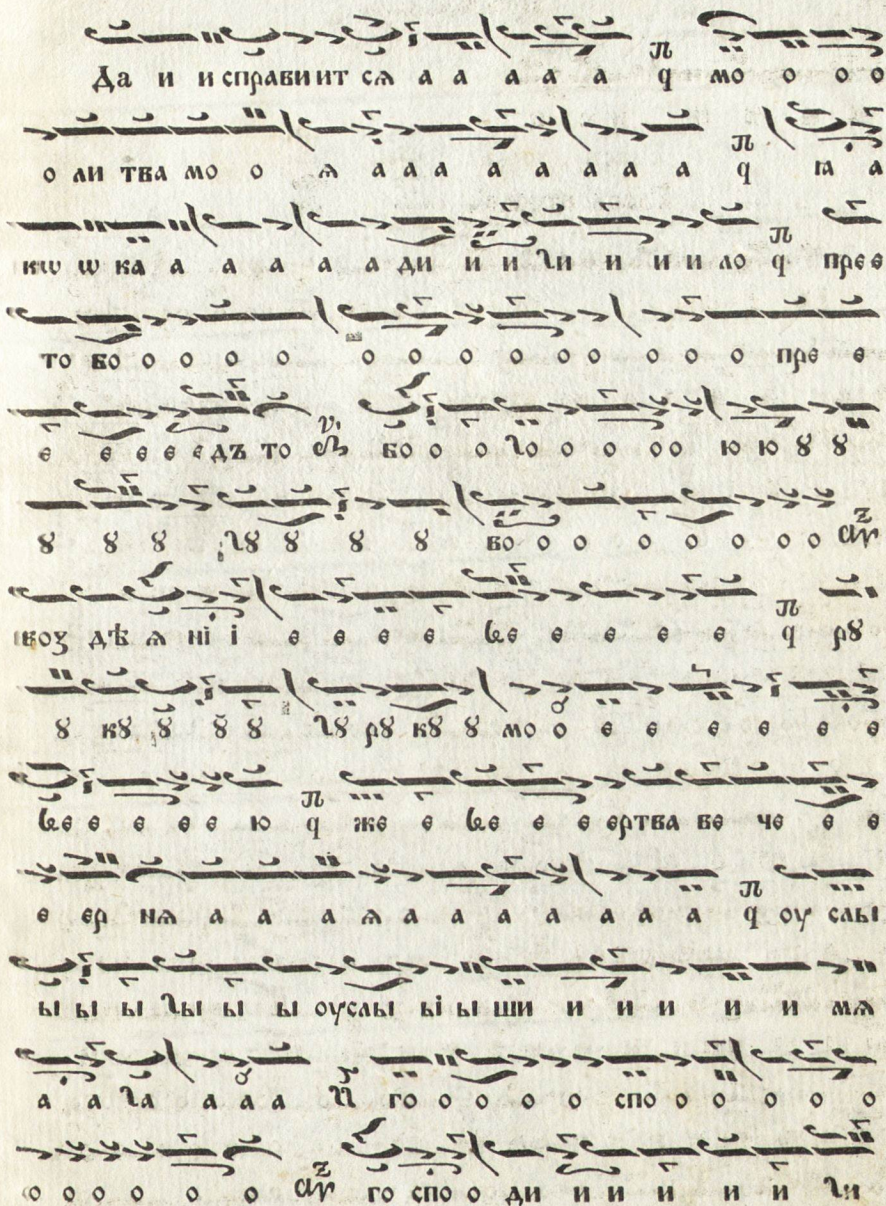 Да и и справи ит сѧ а а а а а мо о о о
о ли тва мо о ѧ а а а а а а а а а ꙗ а
кѡ ѡ ка а а а а а ди и и и и и и ло пре е
то бо о о о о о о о о о о о о о пре е
е е е е е дъ то бо о о о о о о о ю ю ꙋ ꙋ
ꙋ ꙋ ꙋ ꙋ ꙋ ꙋ ꙋ во о о о о о о о
воз дѣ ѧ ні і е е е е е е е е е рꙋ
ꙋ кꙋ ꙋ ꙋ ꙋ ꙋ рꙋ кꙋ ꙋ мо о е е е е е е
е е е е е ю же е е е е ертва ве че е е
е ер нѧ а а а ѧ а а а а а а а оу слы
ы ы ы ы ы ы оуслы ы ы ши и и и и и мѧ
а а а а а а го о о о о спо о о о о о
о о о о о о го спо о ди и и и и и и